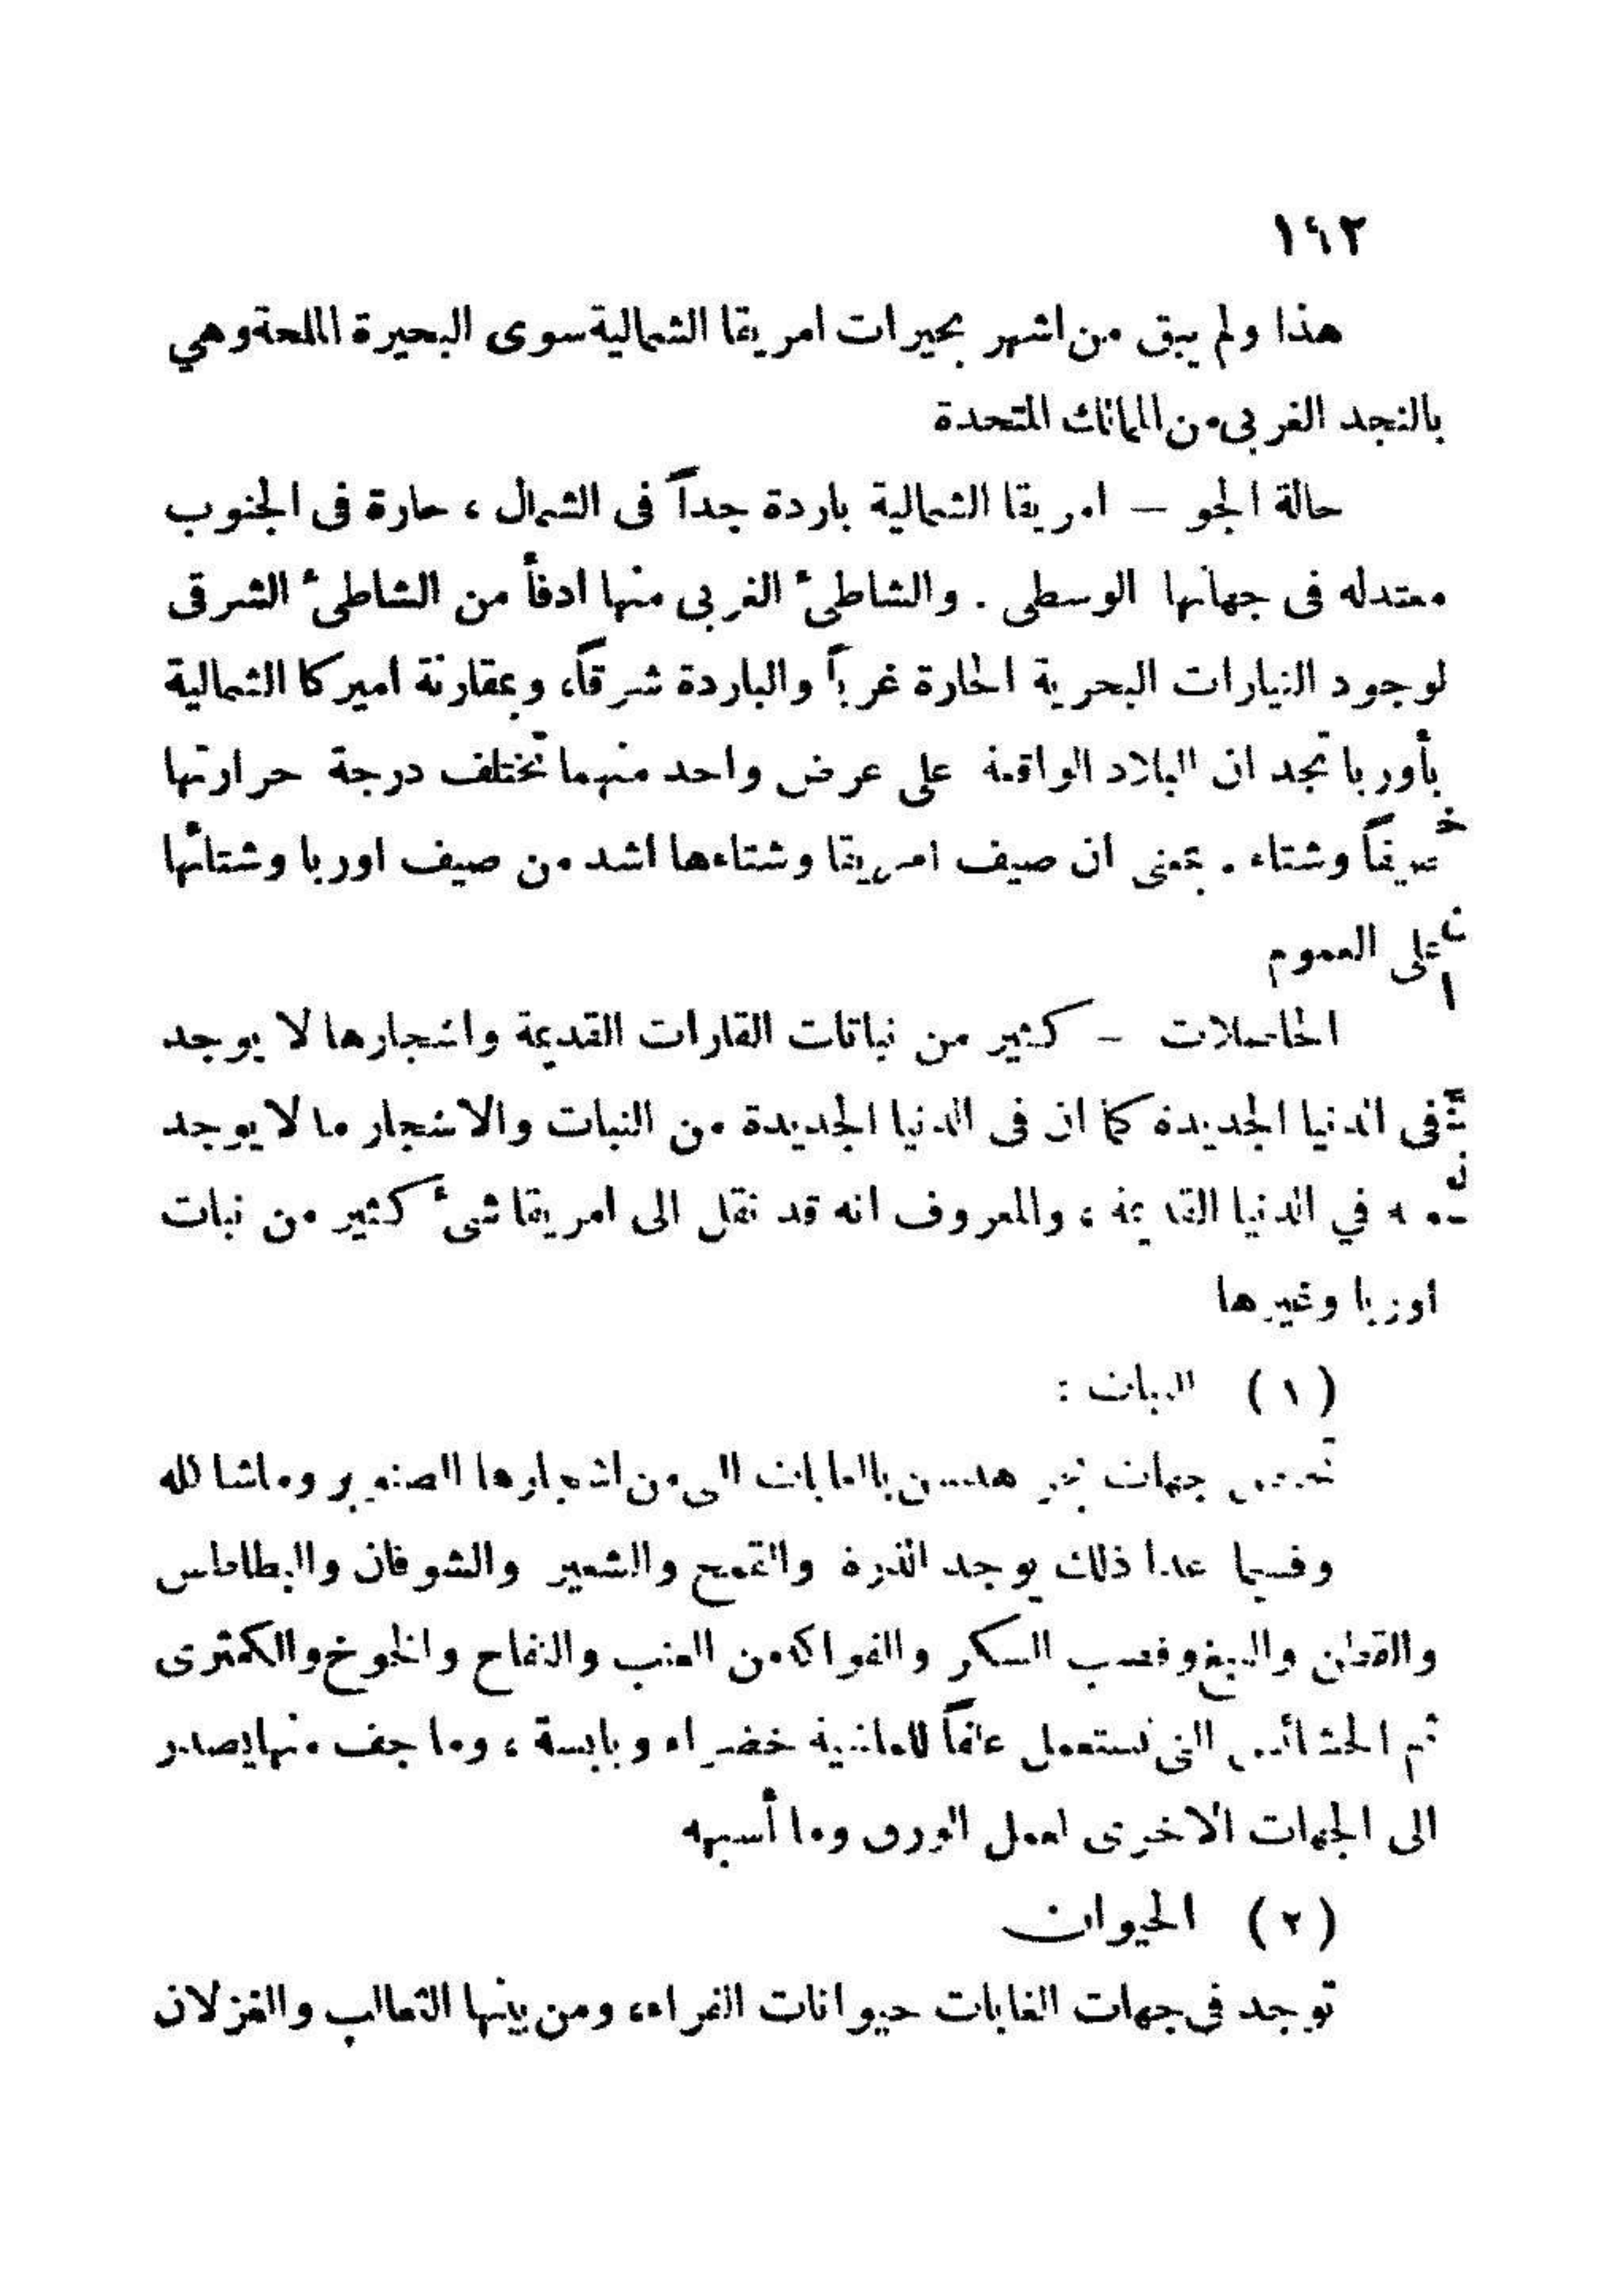 ١٩٢
هذا ولم يبق من اشهر بحيرات امريقا الشمالية سوى البحيرة المالحة وهي
بالنجد الغربى من الممالك المتحدة
حالة الجو — امريقا الشمالية باردة جداً فى الشمال ، حارة فى الجنوب
معتدله فى جهاتها الوسطى . والشاطئ الغربى منها ادفأ من الشاطئ الشرقى
لوجود التيارات البحرية الحارة غرباً والباردة شرقاً، وبمقارنة اميركا الشمالية
بأوربا تجد ان البلاد الواقعة على عرض واحد منهما تختلف درجة حرارتها
صيفاً وشتاء . بمعنى ان صيف امريقا وشتاءها اشد من صيف اوربا وشتائها
على العموم
الحاصلات – كثير من نباتات القارات القديمة واشجارها لا يوجد
فى الدنيا الجديدة كما ان فى الدنيا الجديدة من النبات والاشجار ما لا يوجد
في الدنيا القديمة ، والمعروف انه قد نقل الى امريقا شئ كثير من نبات
اوربا وغيرها
( ١ ) النبات :
جهات هدسن بالغابات التى من اشجارها الصنوبر وماشا كله
وفيما عدا ذلك يوجد الذرة والقمح والشعير والشوفان والبطاطس
والقطن والتبغ وقصب السكر والفواكه من العنب والتفاح والخوخ والكمثرى
ثم الحشائش التى تستعمل علفاً للماشية خضراء ويابسة ، وما جف منها يصدر
الى الجهات الاخرى لعمل الورق وما أشبهه
( ٢ ) الحيوان
توجد فى جهات الغابات حيوانات الفراء، ومن بينها الثعالب والغزلان